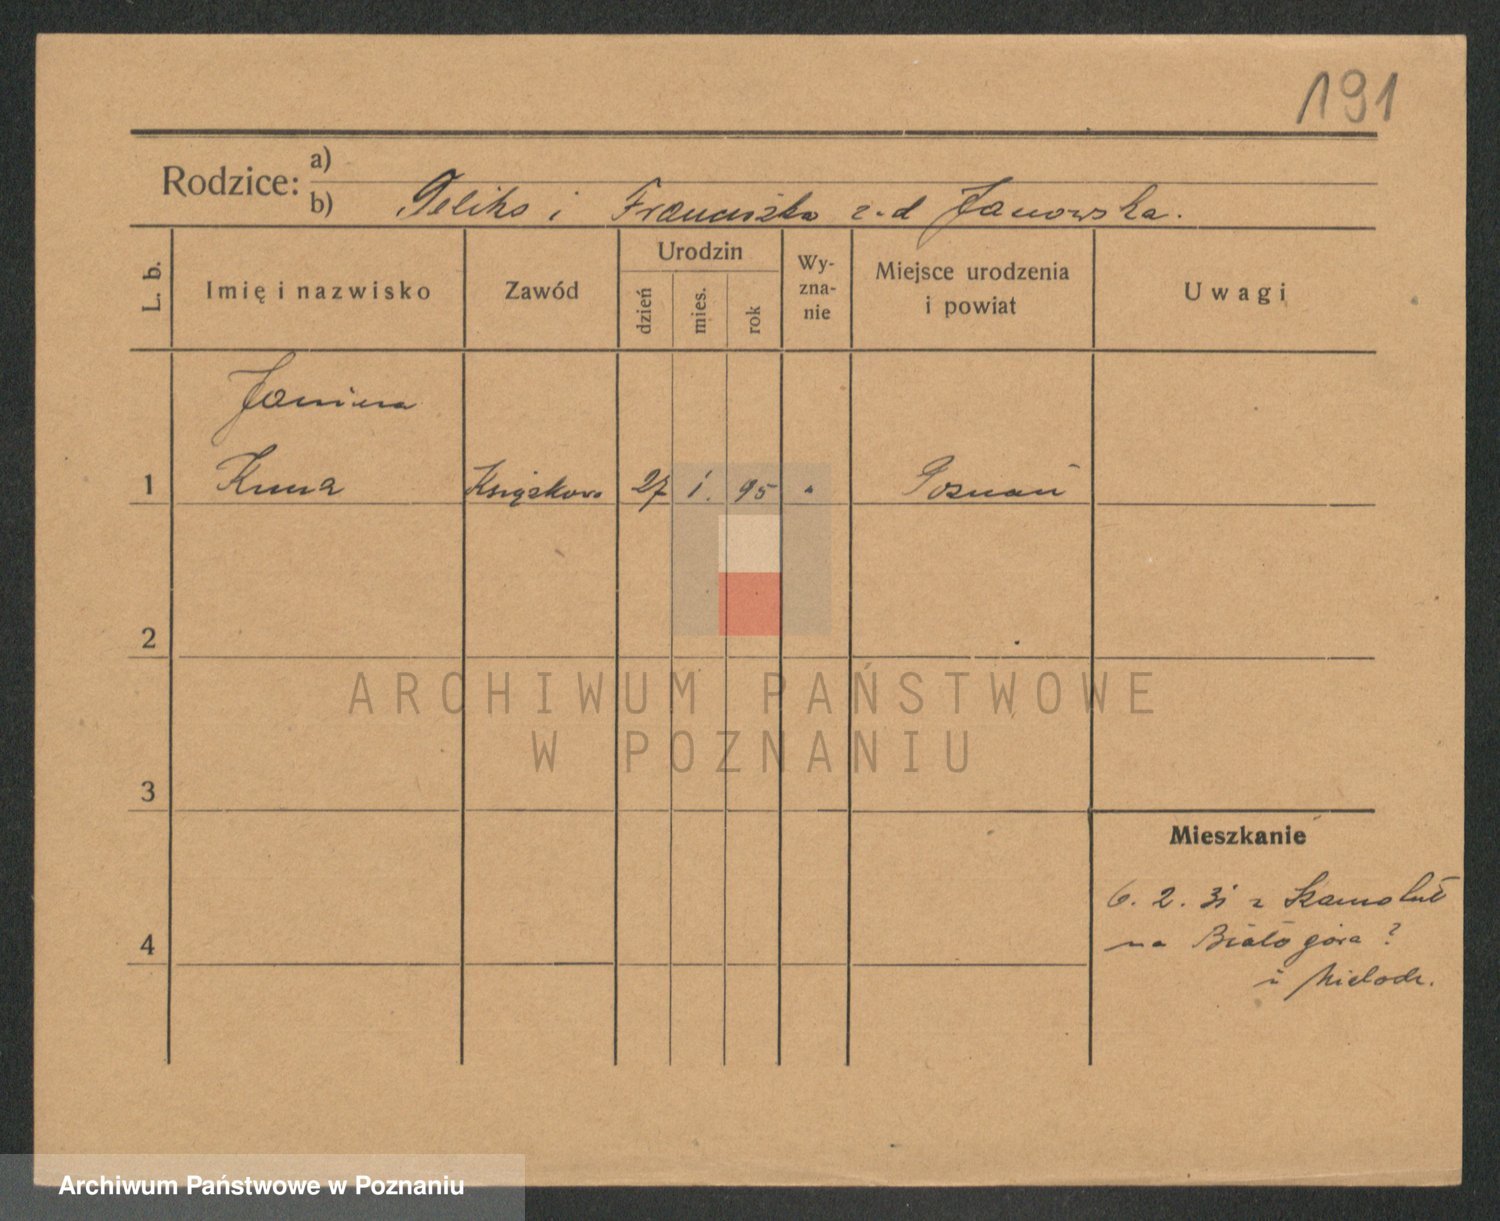 191
Rodzice: a)
b) Feliks i Franciszka z.d Janowska.
L. b.
Imię i nazwisko
Zawód
Urodzin
dzień
mies.
rok
Wy-
zna-
nie
Miejsce urodzenia
i powiat
Uwagi
Janina
1 Kuna 27 1. 95 Poznań
2
ARCHIWUM PAŃSTWOWE
W POZNANIU
3
Mieszkanie
6. 2. 31 z
na Białogóra ?
4
i
Archiwum Państwowe w Poznaniu